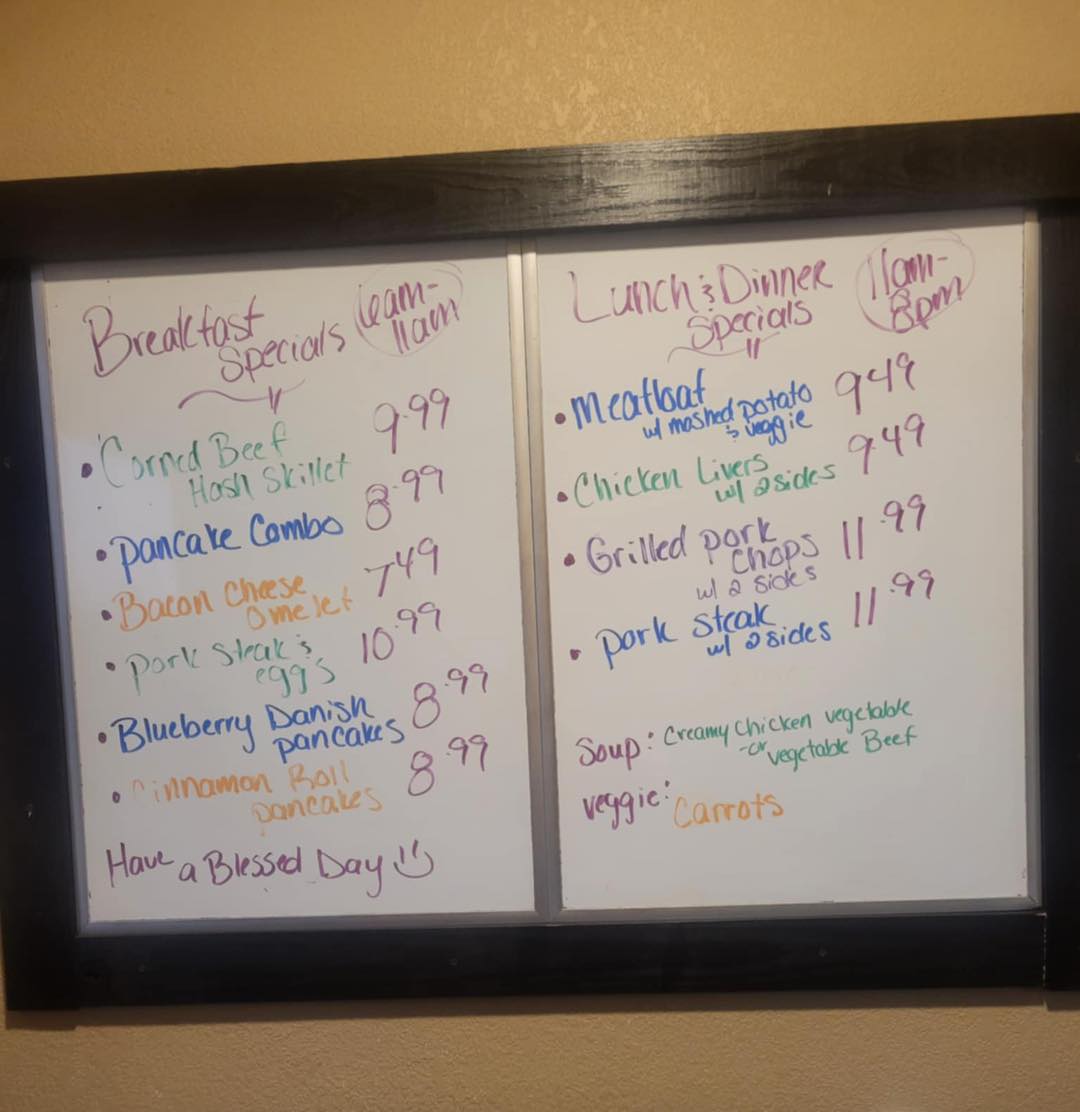 Breakfast
Specials
6am-
11am
• Corned Beef
Hash Skillet 9.99
• Pancake Combo 8.99
• Bacon Cheese
Omelet 7.49
• Pork Steak &
egg's 10.99
• Blueberry Danish
pancakes 8.99
• Cinnamon Roll
pancakes 8.99
Have a Blessed Day
Lunch & Dinner
Specials
11am-
8pm
• Meatloaf 9.49
w/ mashed potato
& veggie
• Chicken Livers 9.49
w/ 2 sides
• Grilled pork
Chops 11.99
w/ 2 sides
• Pork Steak 11.99
w/ 2 sides
Soup: Creamy Chicken vegetable
-or
vegetable Beef
veggie: Carrots